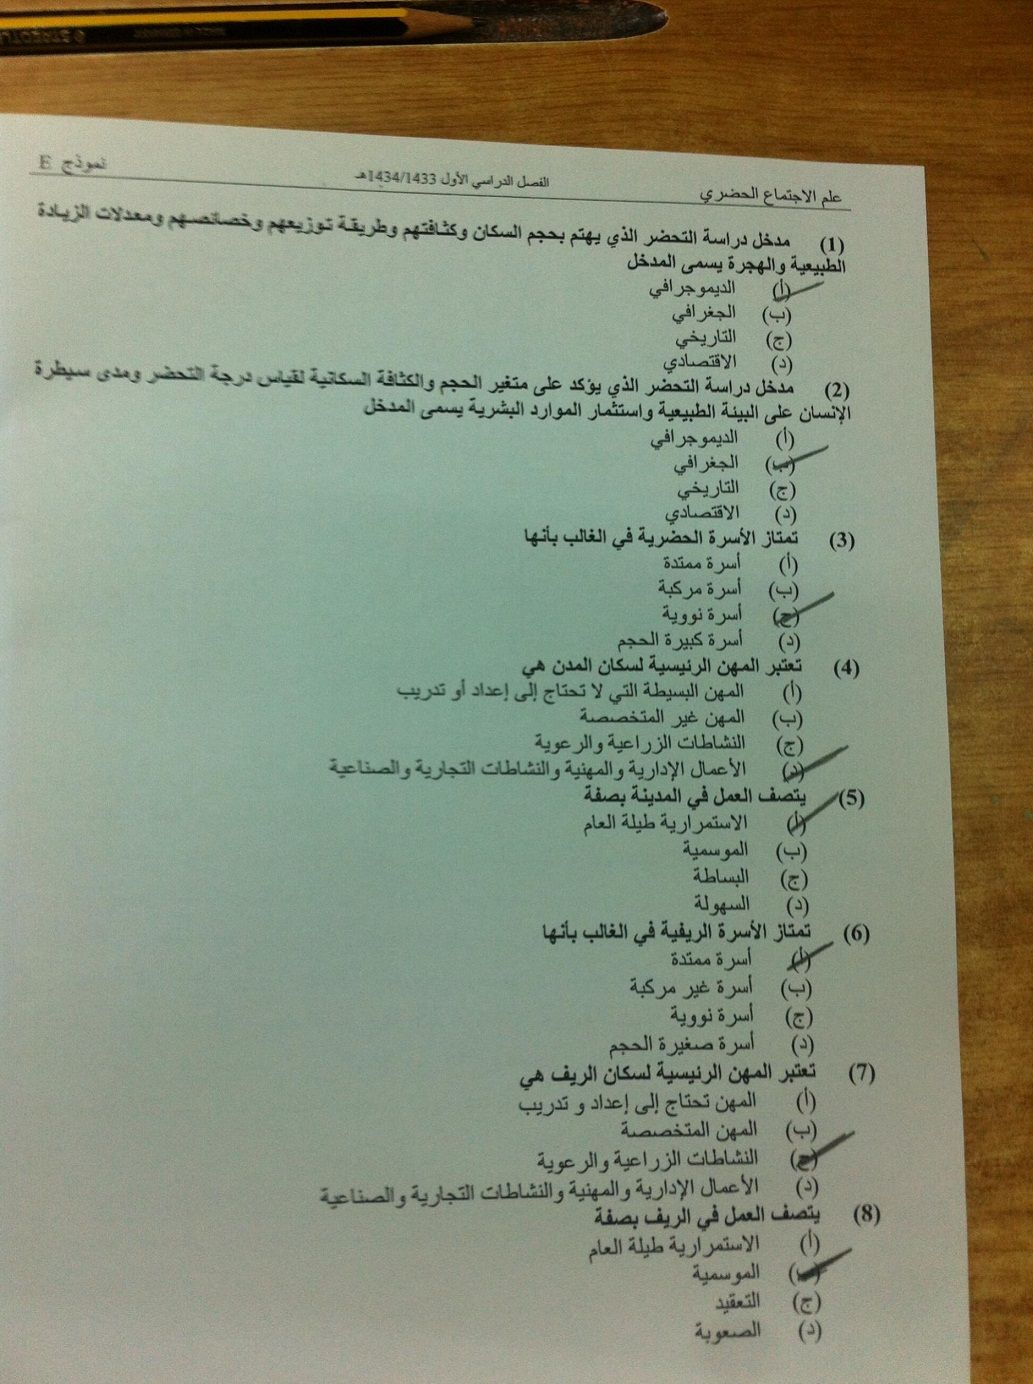 علم الاجتماع الحضري الفصل الدراسي الأول 1434/1433هـ نموذج E
(1) مدخل دراسة التحضر الذي يهتم بحجم السكان وكثافتهم وطريقة توزيعهم وخصائصهم ومعدلات الزيادة
الطبيعية والهجرة يسمى المدخل
(أ) الديموجرافي
(ب) الجغرافي
(ج) التاريخي
(د) الاقتصادي
(2) مدخل دراسة التحضر الذي يؤكد على متغير الحجم والكثافة السكانية لقياس درجة التحضر ومدى سيطرة
الإنسان على البيئة الطبيعية واستثمار الموارد البشرية يسمى المدخل
(أ) الديموجرافي
(ب) الجغرافي
(ج) التاريخي
(د) الاقتصادي
(3) تمتاز الأسرة الحضرية في الغالب بأنها
(أ) أسرة ممتدة
(ب) أسرة مركبة
(ج) أسرة نووية
(د) أسرة كبيرة الحجم
(4) تعتبر المهن الرئيسية لسكان المدن هي
(أ) المهن البسيطة التي لا تحتاج إلى إعداد أو تدريب
(ب) المهن غير المتخصصة
(ج) النشاطات الزراعية والرعوية
(د) الأعمال الإدارية والمهنية والنشاطات التجارية والصناعية
(5) يتصف العمل في المدينة بصفة
(أ) الاستمرارية طيلة العام
(ب) الموسمية
(ج) البساطة
(د) السهولة
(6) تمتاز الأسرة الريفية في الغالب بأنها
(أ) أسرة ممتدة
(ب) أسرة غير مركبة
(ج) أسرة نووية
(د) أسرة صغيرة الحجم
(7) تعتبر المهن الرئيسية لسكان الريف هي
(أ) المهن تحتاج إلى إعداد و تدريب
(ب) المهن المتخصصة
(ج) النشاطات الزراعية والرعوية
(د) الأعمال الإدارية والمهنية والنشاطات التجارية والصناعية
(8) يتصف العمل في الريف بصفة
(أ) الاستمرارية طيلة العام
(ب) الموسمية
(ج) التعقيد
(د) الصعوبة